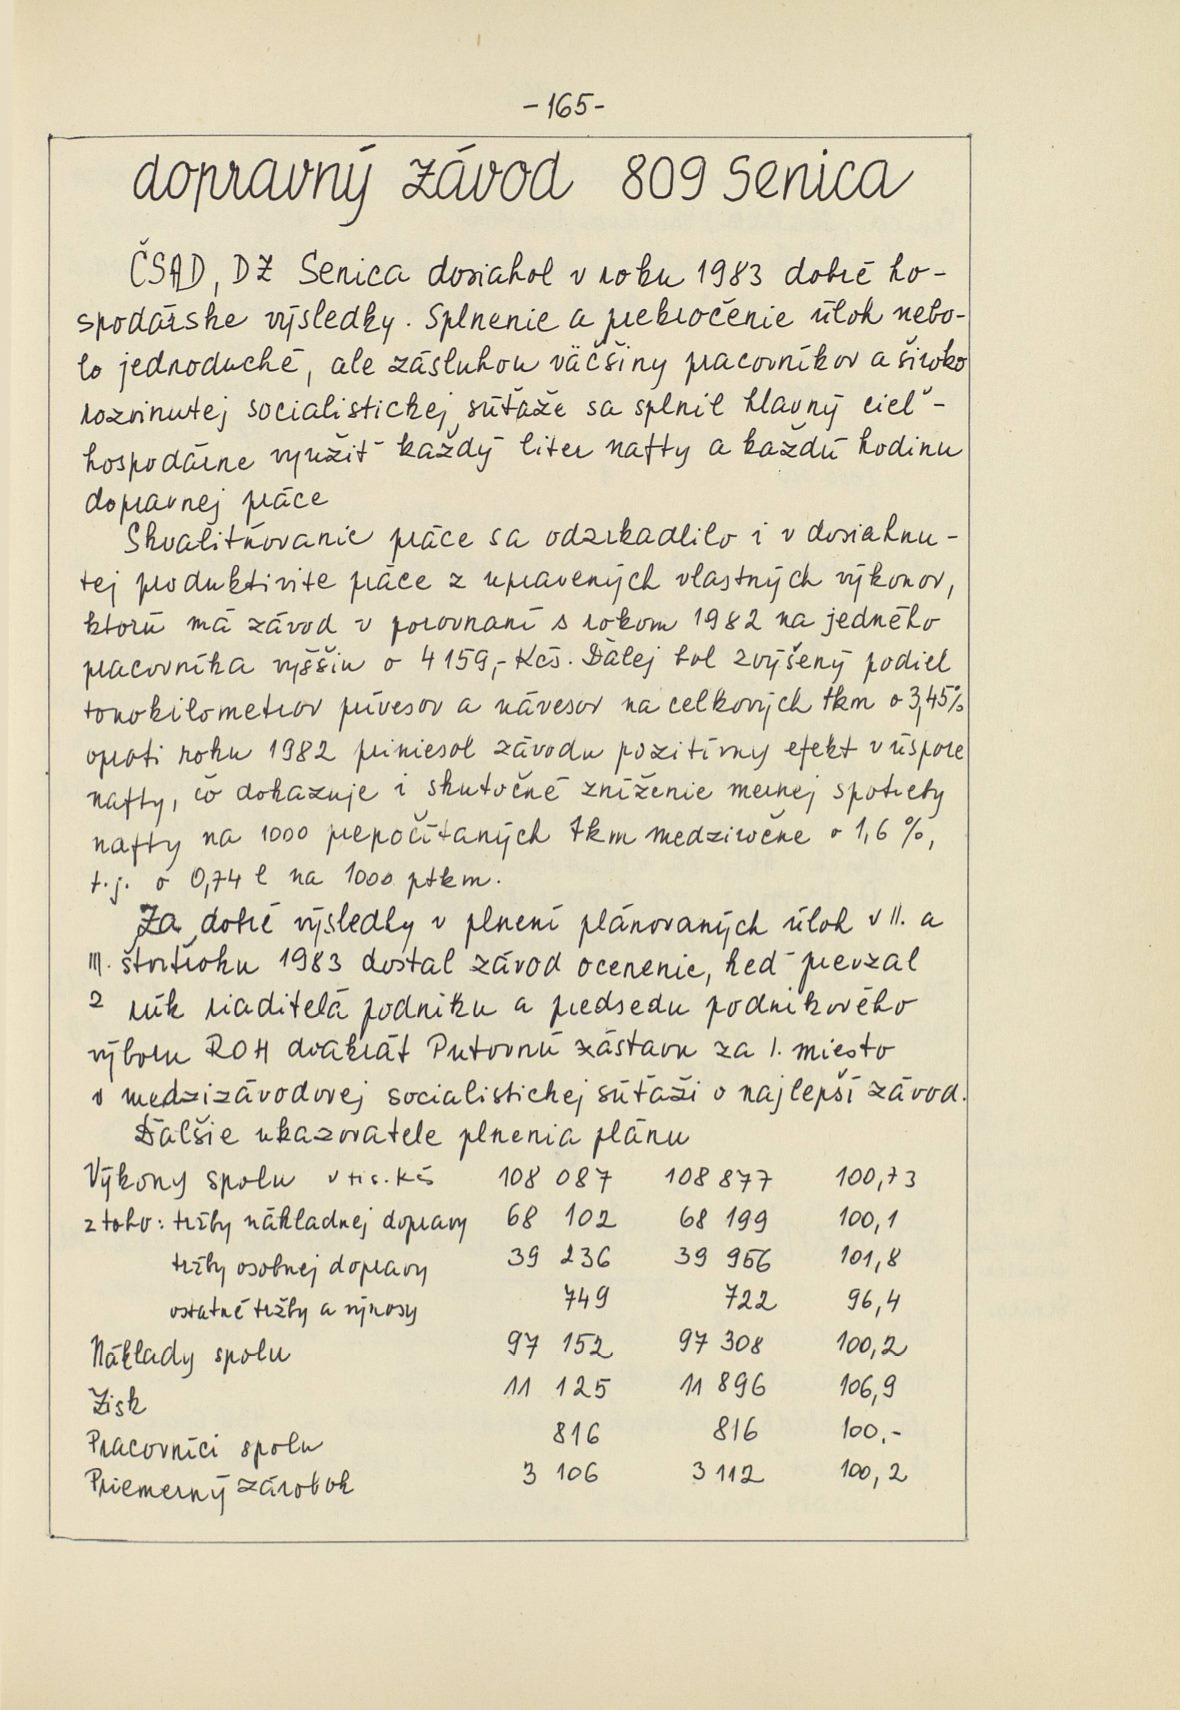 -165-
dopravný závod 809 Senica
ČSAD, DZ Senica dosiahol v roku 1983 dobré ho-
spodárske výsledky. Splnenie a prekročenie úloh nebo-
lo jednoduché, ale zásluhou väčšiny pracovníkov a široko
rozvinutej socialistickej súťaže sa splnil hlavný cieľ -
hospodárne využiť každý liter nafty a každú hodinu
dopravnej práce
Skvalitňovanie práce sa odzrkadlilo i v dosiahnu-
tej produktivite práce z upravených vlastných výkonov,
ktorú má závod v porovnaní s rokom 1982 na jedného
pracovníka vyššiu o 4159,- Kčs. Ďalej bol zvýšený podiel
tonokilometrov prívesov a návesov na celkových tkm o 3,45%
oproti roku 1982 priniesol závodu pozitívny efekt v úspore
nafty, čo dokazuje i skutočné zníženie mernej spotreby
nafty na 1000 prepočítaných tkm medziročne o 1,6 %,
t.j. o 0,74 l na 1000 ptkm.
Za dobré výsledky v plnení plánovaných úloh v II. a
III. štvrťroku 1983 dostal závod ocenenie, keď prevzal
z rúk riaditeľa podniku a predsedu podnikového
výboru ROH dvakrát Putovnú zástavu za 1. miesto
v medzizávodovej socialistickej súťaži o najlepší závod.
Ďalšie ukazovatele plnenia plánu
Výkony spolu v tis. Kčs 108 087 108 877 100,73
z toho: tržby nákladnej dopravy 68 102 68 199 100,1
tržby osobnej dopravy 39 236 39 956 101,8
ostatné tržby a výnosy 749 722 96,4
Náklady spolu 97 152 97 308 100,2
Zisk 11 125 11 896 106,9
Pracovníci spolu 816 816 100.-
Priemerný zárobok 3 106 3 112 100,2